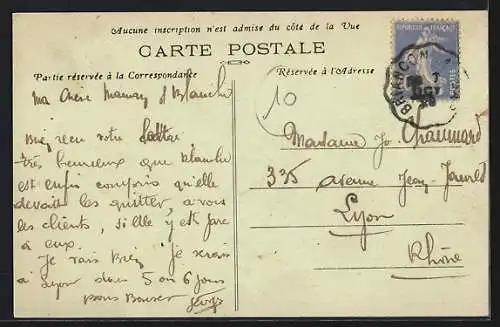 Aucune inscription n'est admise du côté de la Vue
CARTE POSTALE
Partie réservée à la Correspondance
Réservée à l'Adresse
ma chère Maman et Blanche
Bien reçu votre lettre
très heureux que Blanche
est enfin compris qu'elle
devait les quitter, avous
les clients, si elle y est face
à eux.
Je vais bien je serais
à Lyon dans 5 ou 6 jours
bons Baiser
10
BRIANCON
7
OCT
POSTES
Madame Jo
335 avenue Jean-Jaurès
Lyon
Rhône